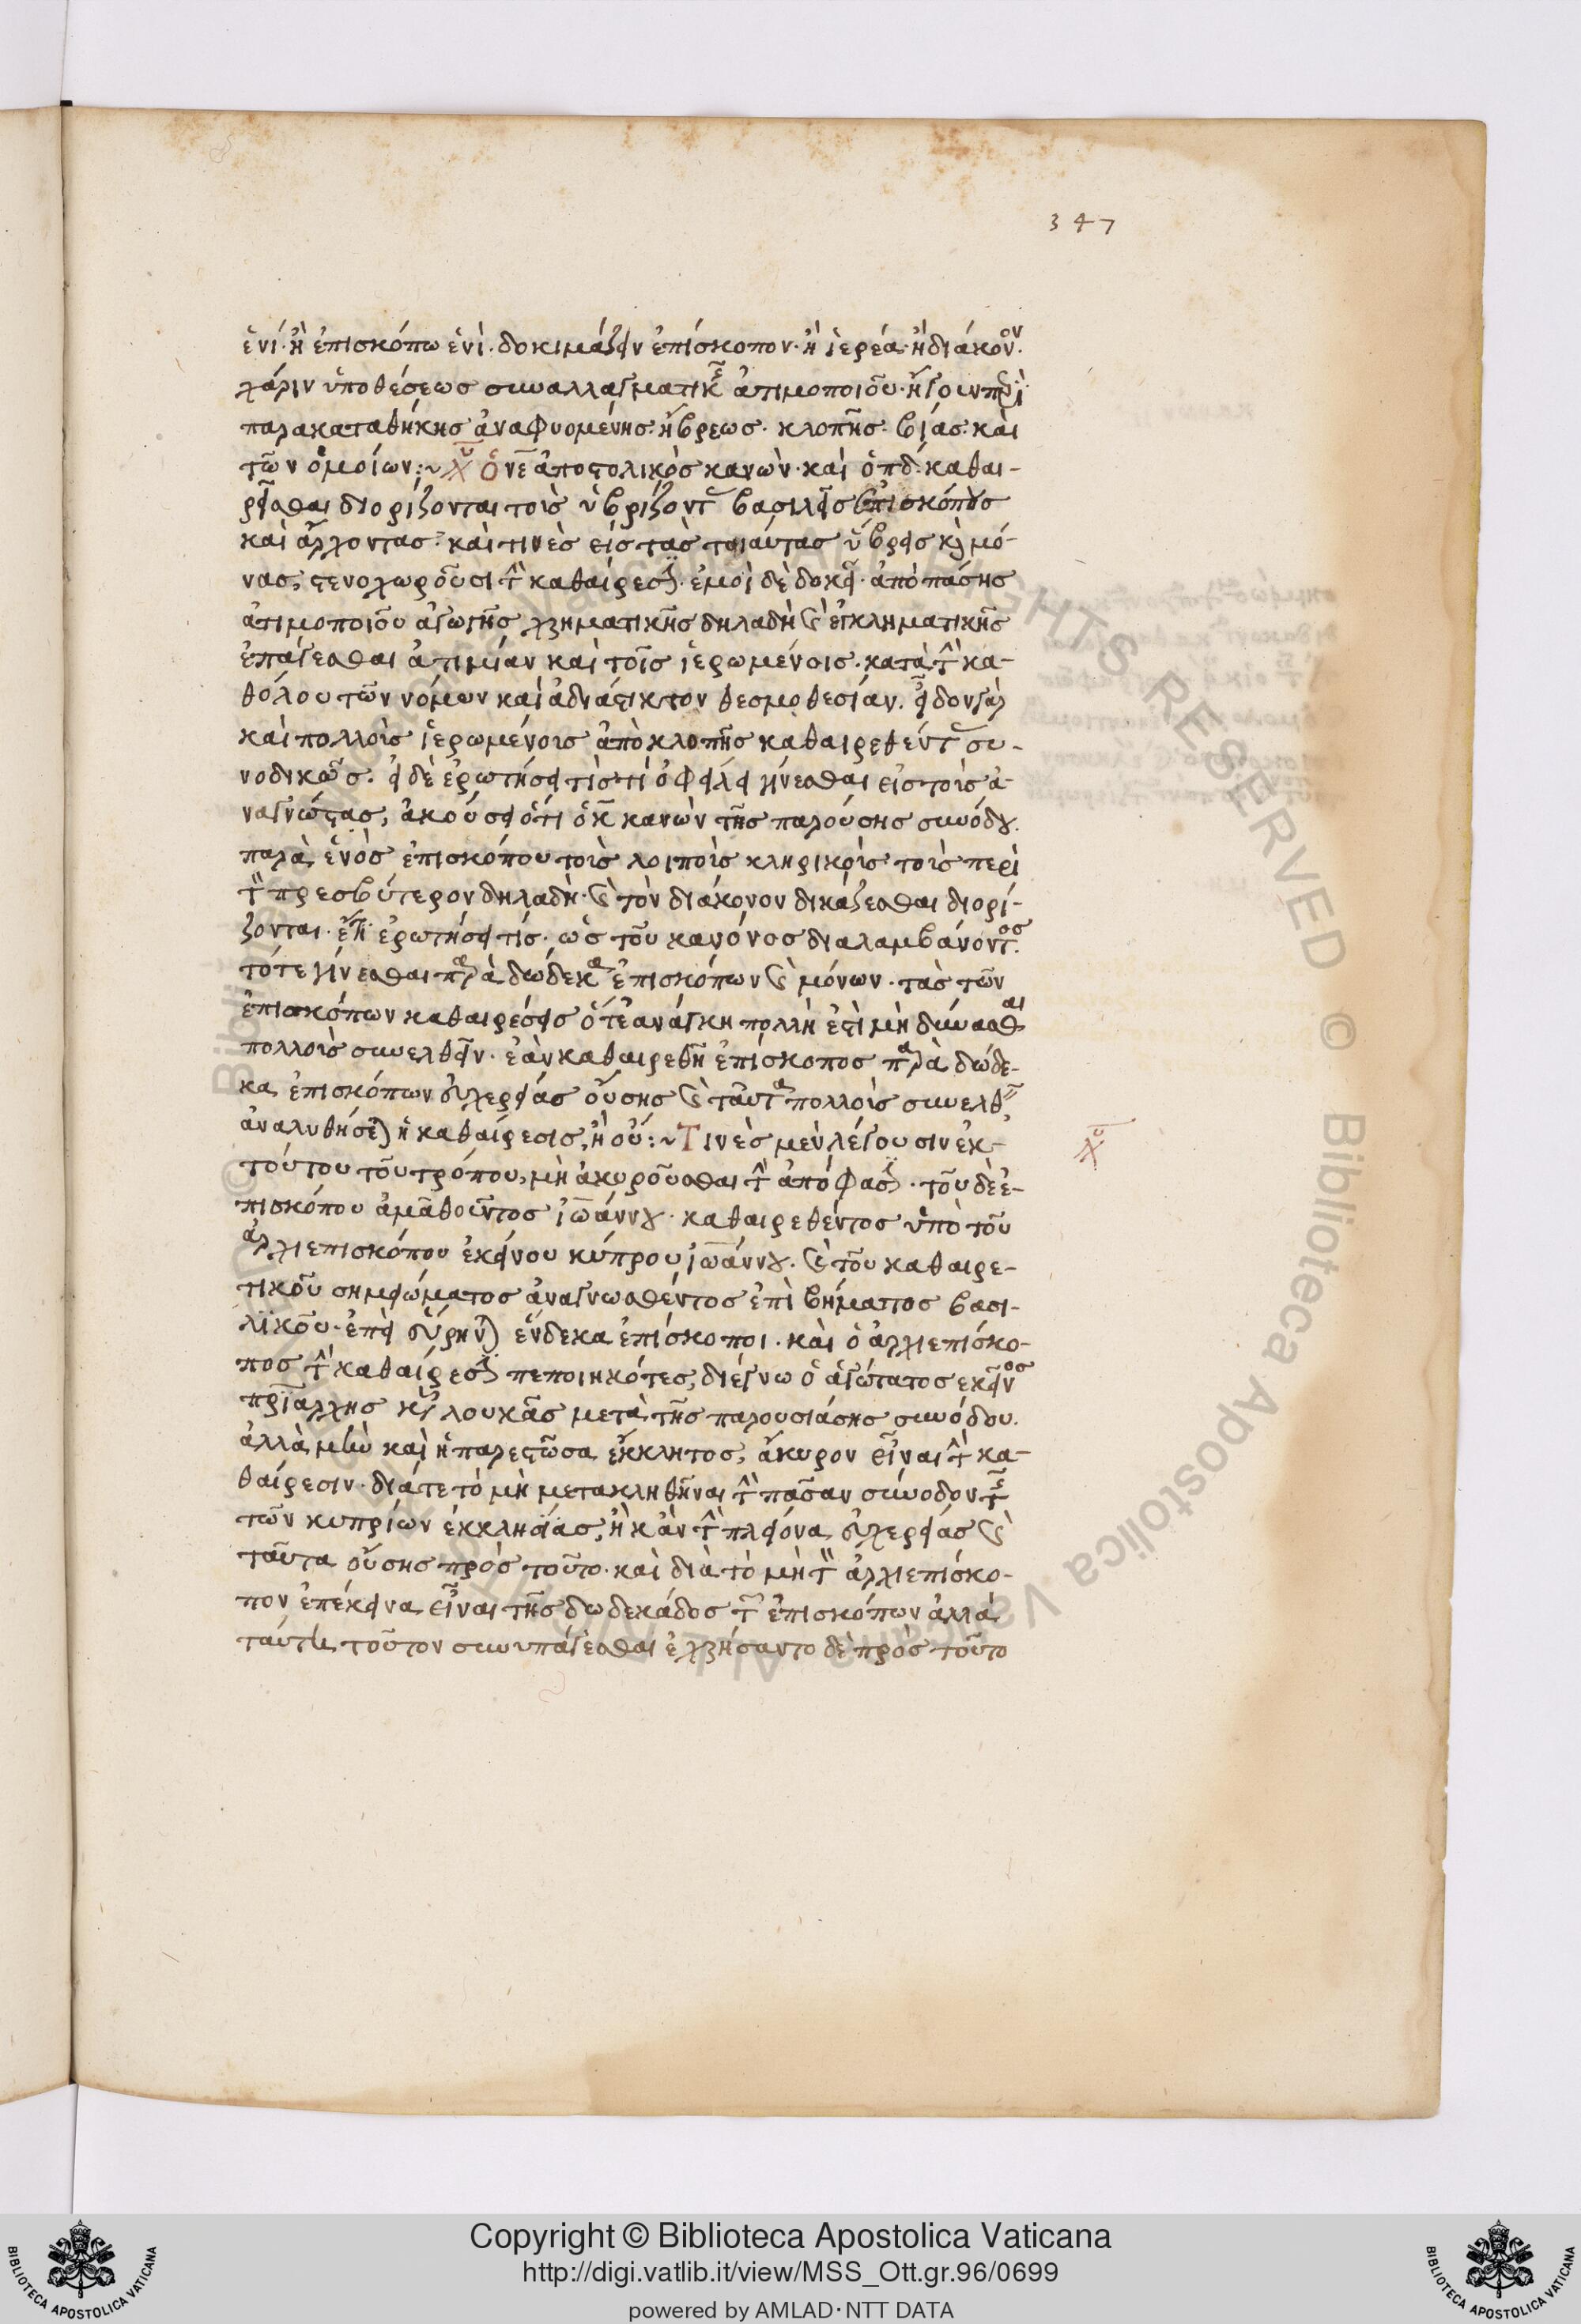 347
ἑνί· ἢ ἐπισκόπω ἑνὶ· δοκιμάζειν ἐπίσκοπον· ἢ ἱερέα· ἢ διάκονον·
χάριν ὑποθέσεως συναλλαγματικῆς ἀτιμοποιοῦ· ἤγουν περὶ
παρακαταθήκης ἀναφυομένης· ὕβρεως· κλοπῆς· βίας· καὶ
τῶν ὁμοίων:~ Ὁ νε ἀποστολικὸς κανὼν· καὶ ὁ πδ· καθαι-
ρεῖσθαι διορίζονται τοὺς ὑβρίζοντας βασιλεῖς ἐπισκόπους
καὶ ἄρχοντας· καὶ τινὲς εἰς τὰς τοιαύτας ὕβρεις καὶ μό-
νας, στενοχωροῦσι τὴν καθαίρεσιν· ἐμοὶ δὲ δοκεῖ· ἀπὸ πάσης
ἀτιμοποιοῦ ἀγωγῆς χρηματικῆς δηλαδὴ καὶ ἐγκληματικῆς
ἐπάγεσθαι ἀτιμίαν καὶ τοῖς ἱερωμένοις· κατὰ τὴν κα-
θόλου τῶν νόμων καὶ ἀδιάστικτον θεσμοθεσίαν. εἶδον γὰρ
καὶ πολλοὺς ἱερωμένους ἀπὸ κλοπῆς καθαιρεθέντας συ-
νοδικῶς· εἰ δὲ ἐρωτήσει τὶς τί ὀφείλει γίνεσθαι εἰς τοὺς ἀ-
ναγνώστας, ἀκούσει ὅτι ὁ κ κανὼν τῆς παρούσης συνόδου
παρὰ ἑνὸς ἐπισκόπου τοὺς λοιποὺς κληρικοὺς τοὺς περὶ
τὸν πρεσβύτερον δηλαδὴ· καὶ τὸν διάκονον δικάζεσθαι διορί-
ζονται· ἔτι ἐρωτήσει τίς· ὡς τοῦ κανόνος διαλαμβάνοντος
τότε γίνεσθαι παρὰ δώδεκα ἐπισκόπων καὶ μόνων· τὰς τῶν
ἐπισκόπων καθαιρέσεις ὅτε ἀνάγκη πολλὴ ἐστὶ μὴ δύνασθαι
πολλοὺς συνελθεῖν· ἐὰν καθαιρεθῆ ἐπίσκοπος παρὰ δώδε-
κα ἐπισκόπων εὐχερείας οὔσης καὶ ταῦτα πολλοὺς συνελθεῖν,
ἀναλυθήσεται ἡ καθαίρεσις, ἢ οὔ:~ Τινὲς μὲν λέγουσιν ἐκ
τούτου τοῦ τρόπου, μὴ ἀκυροῦσθαι τὴν ἀπόφασιν· τοῦ δὲ ἐ-
πισκόπου ἀμαθοῦντος ἰωάννου· καθαιρεθέντος ὑπὸ τοῦ
ἀρχιεπισκόπου ἐκείνου κύπρου ἰωάννου· καὶ τοῦ καθαιρε-
τικοῦ σημειώματος ἀναγνωσθέντος ἐπὶ βήματος βασι-
λικοῦ· ἐπεὶ εὕρηνται ἕνδεκα ἐπίσκοποι· καὶ ὁ ἀρχιεπίσκο-
πος τὴν καθαίρεσιν πεποιηκότες, διέγνω ὁ ἁγιώτατος ἐκεῖνος
πριάρχης κῦρ λουκᾶς μετὰ τῆς παρουσιάσης συνόδου.
ἀλλὰ μὴν καὶ ἡ παρεστῶσα ἔκκλητος, ἄκυρον εἶναι τὴν κα-
θαίρεσιν· διά τε τὸ μὴ μετακληθῆναι τὴν πᾶσαν σύνοδον τῆς
τῶν κυπρίων ἐκκλησίας, ἢ κἂν τὴν πλείονα εὐχερείας καὶ
ταῦτα οὔσης πρὸς τοῦτο· καὶ διὰ τὸ μὴ τὸν ἀρχιεπίσκο-
πον ἐπέκεινα εἶναι τῆς δωδεκάδος τῶν ἐπισκόπων ἀλλὰ
ταύτη τοῦτον συνυπάγεσθαι ἐχρήσαντο δὲ πρὸς τοῦτο
Copyright © Biblioteca Apostolica Vaticana
http://digi.vatlib.it/view/MSS_Ott.gr.96/0699
powered by AMLAD·NTT DATA